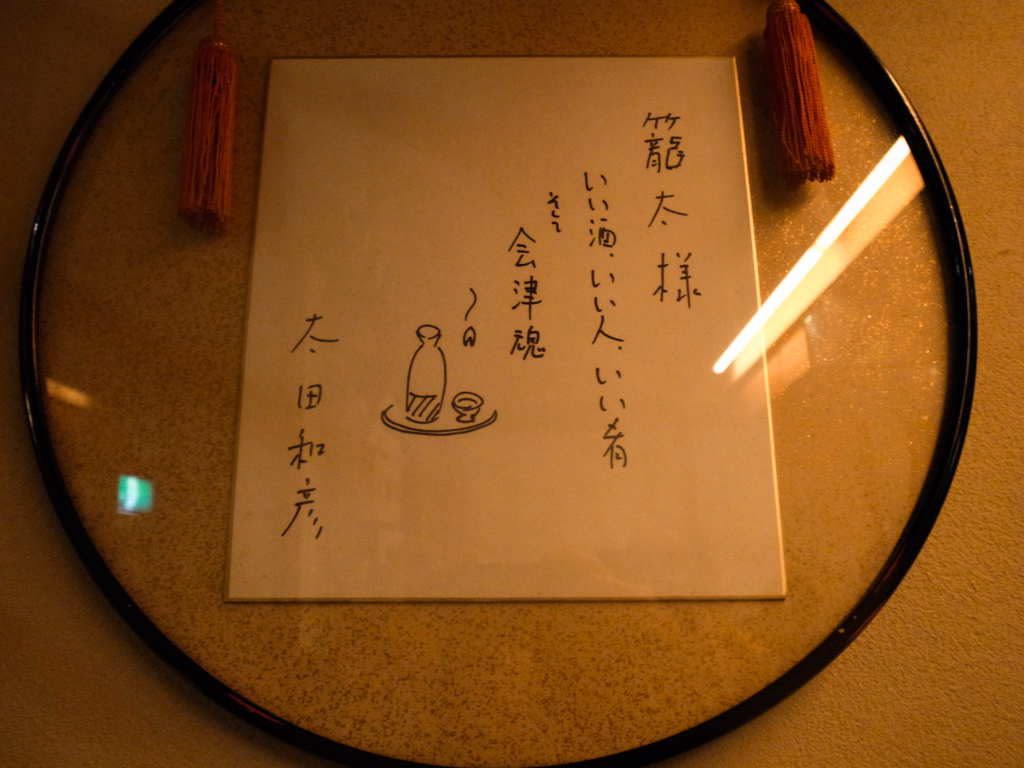 籠太様
いい酒、いい人、いい肴
そして
会津魂
太田和彦